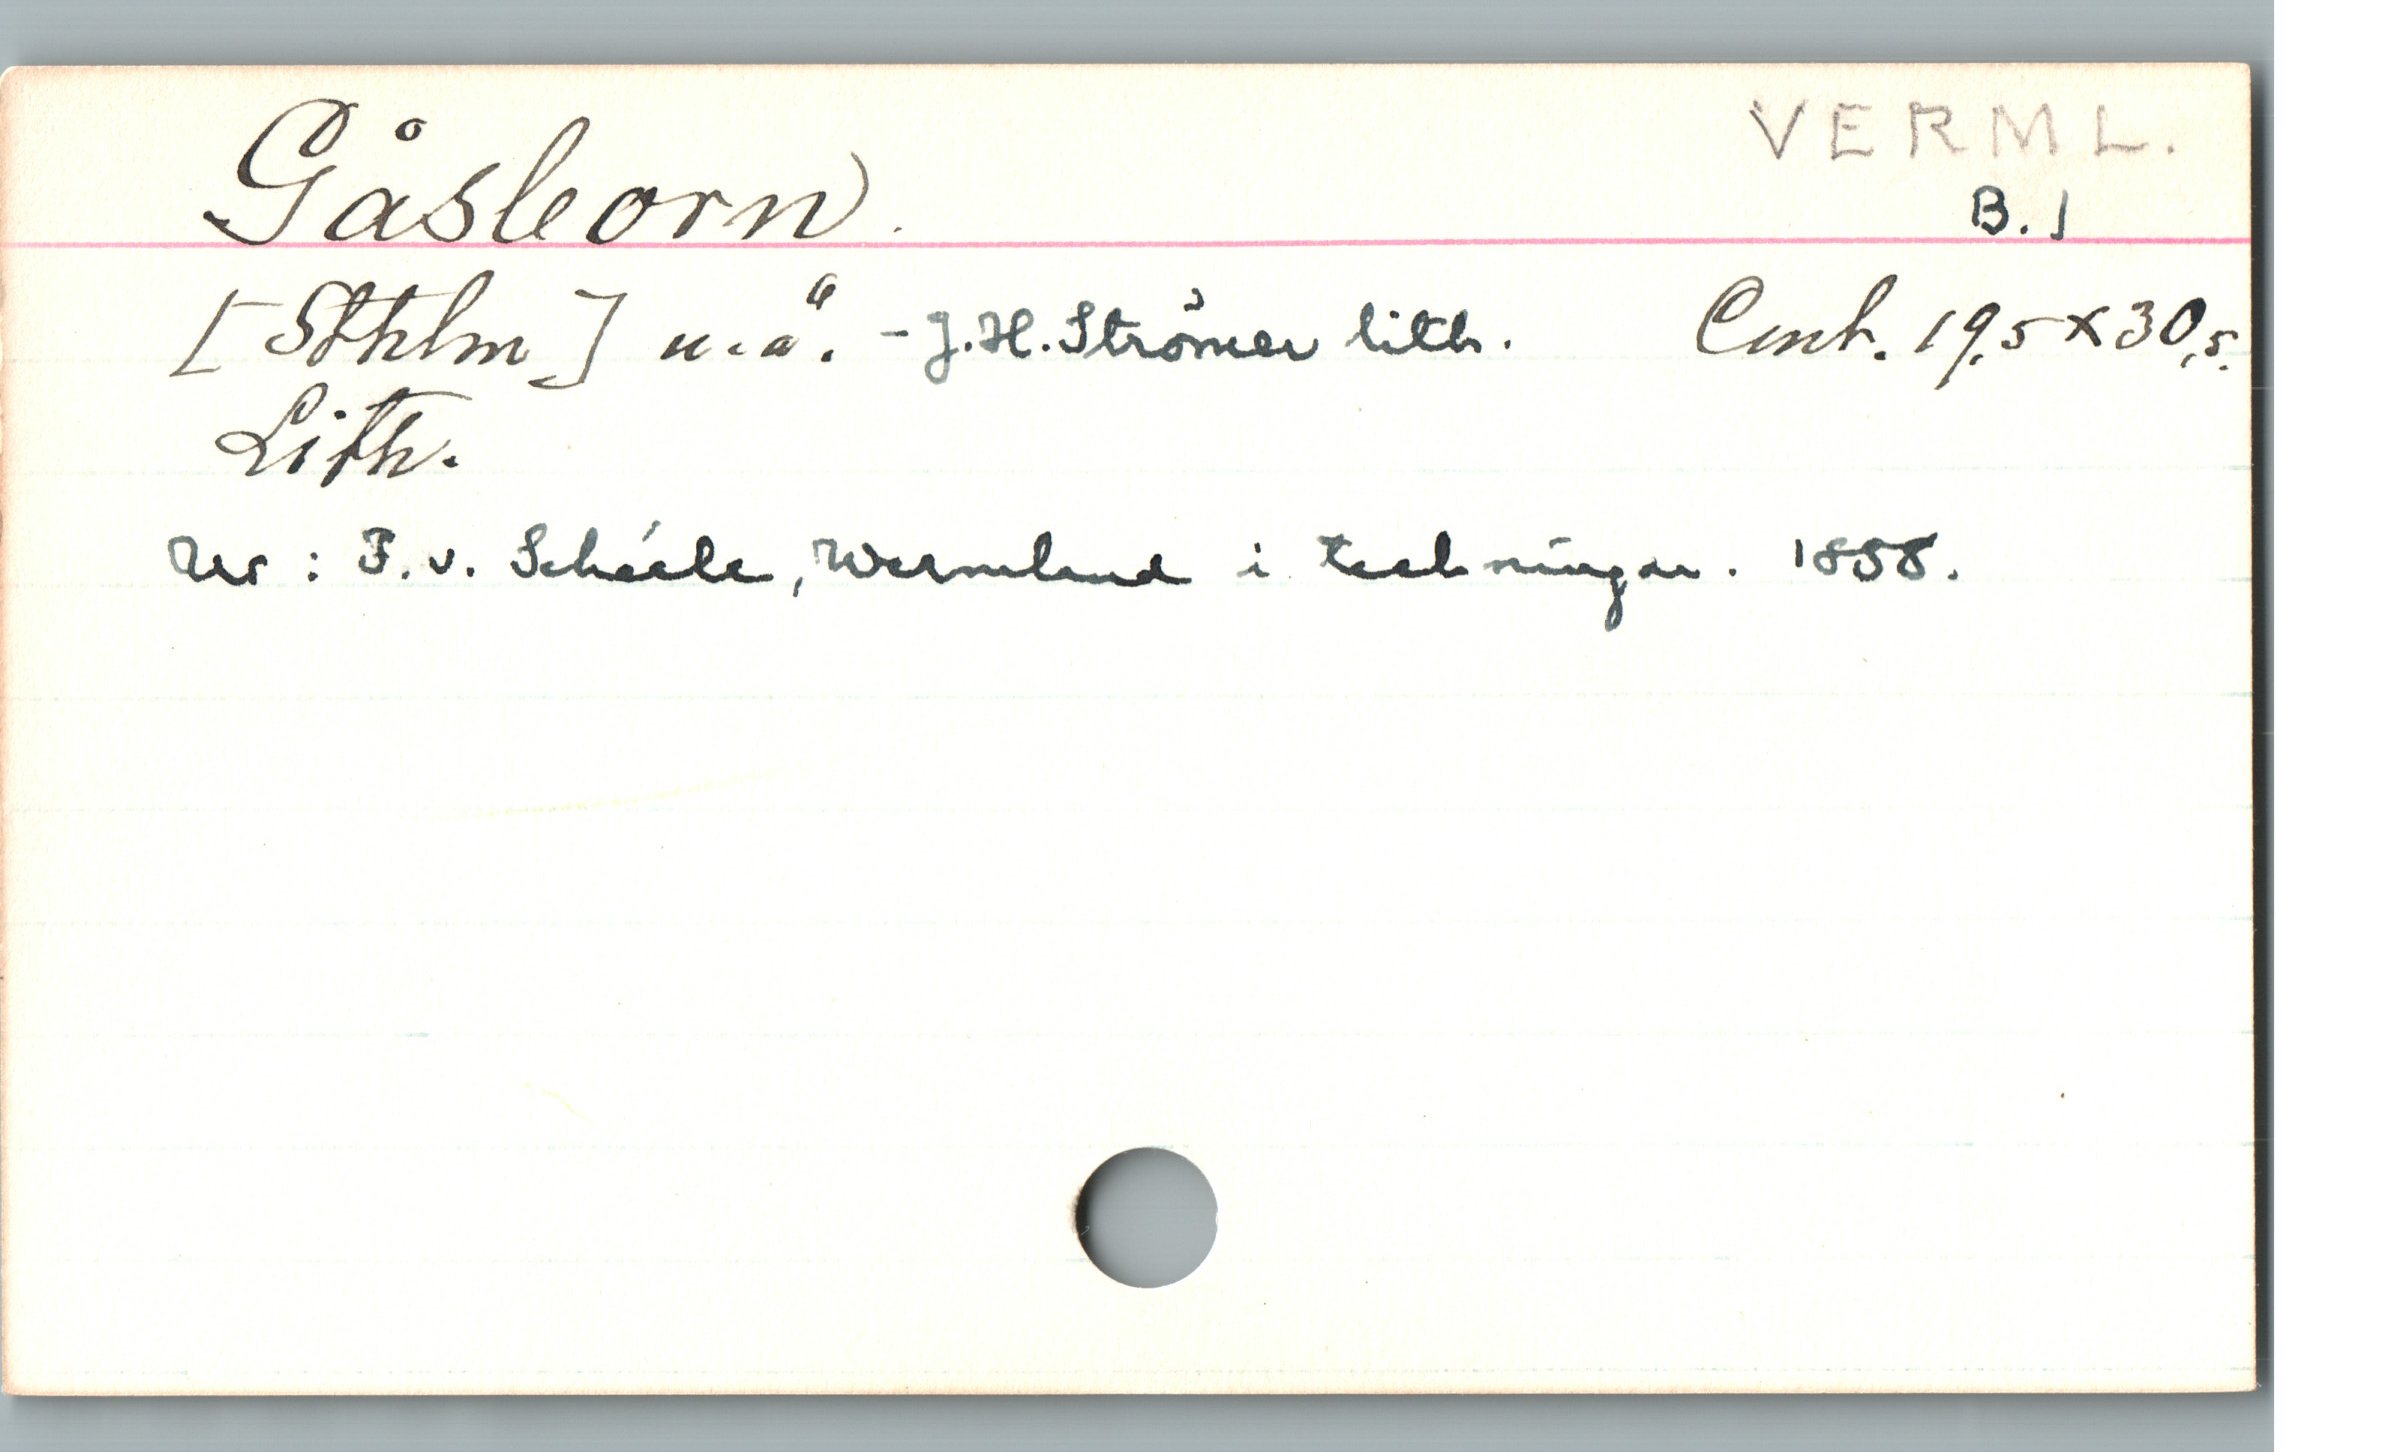 Gåsborn.
VERML.
B. 1
[Sthlm] u.å. - J. H. Strömer lith. Cmt. 19,5 × 30,5.
Lith.
Ur : F. v. Scheele, Wermland i teckningar. 1858.